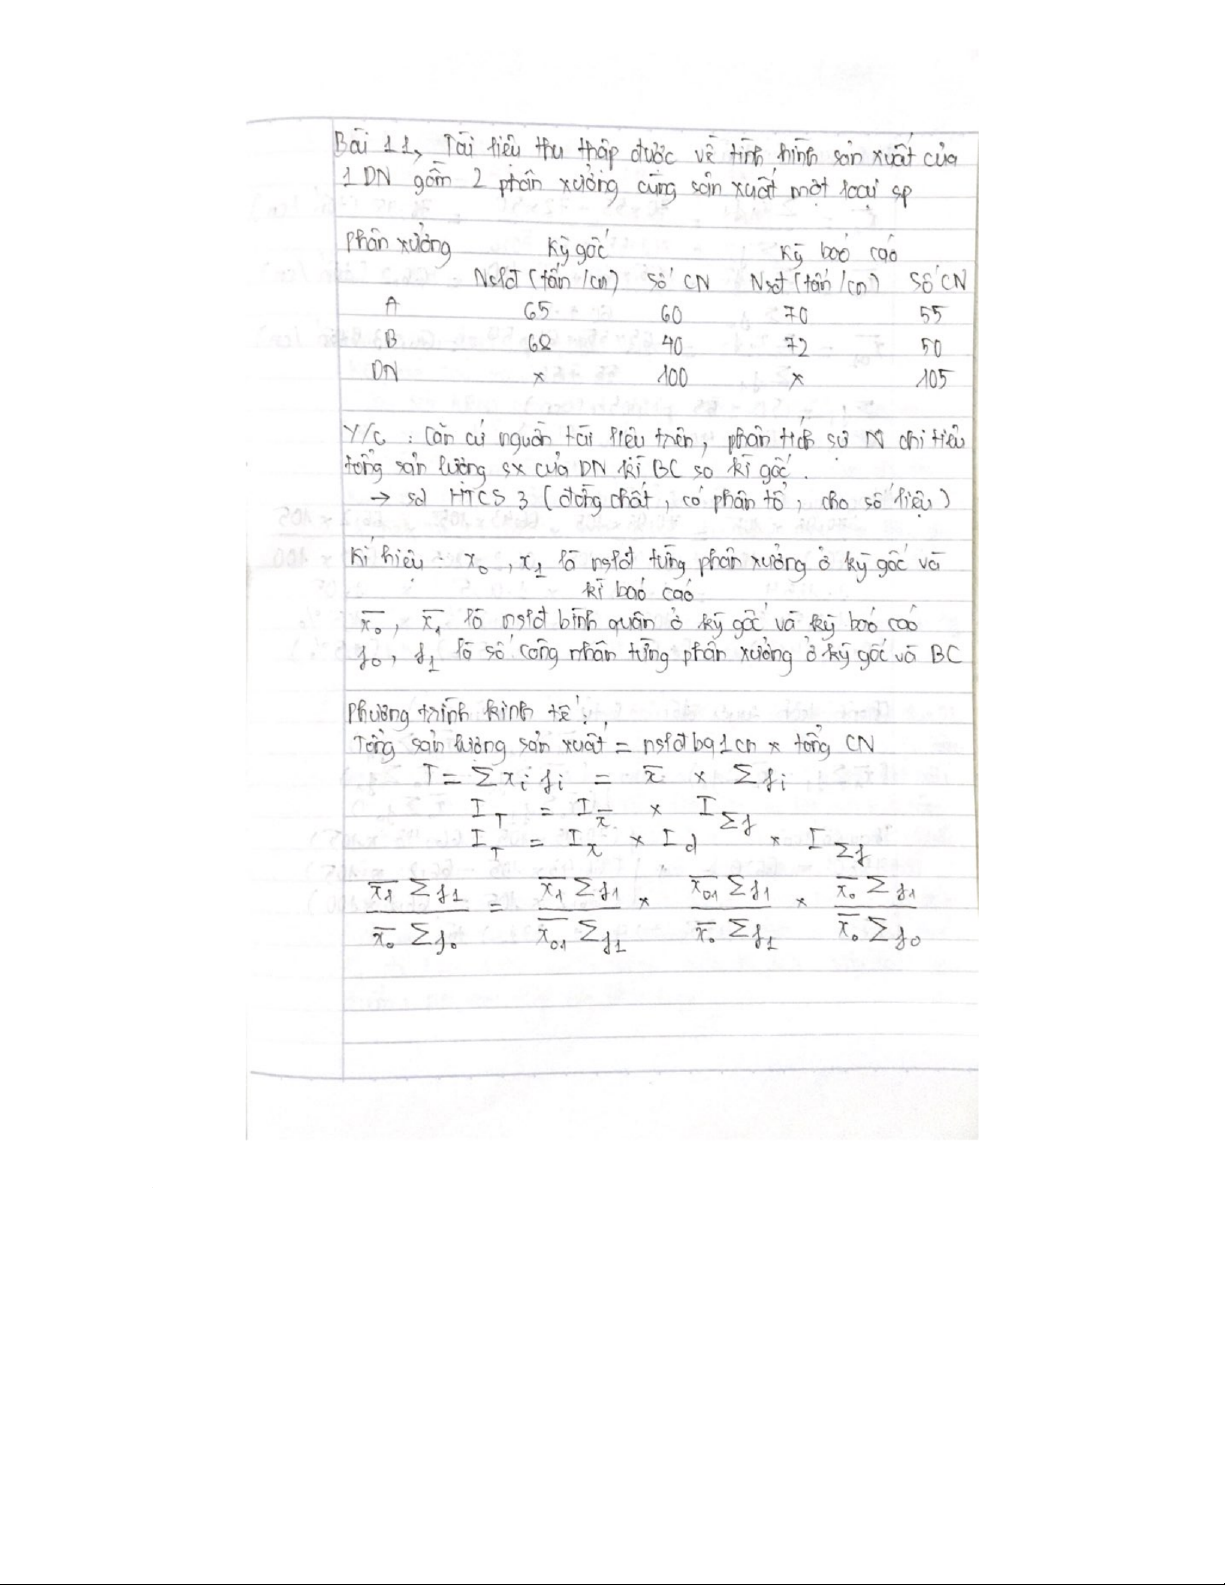 Bài 11, Tài liệu thu thập được về tình hình sản xuất của
1 DN gồm 2 phân xưởng cùng sản xuất một loại sp
Phân xưởng Kỳ gốc Kỳ báo cáo
Nslđ (tấn /cn) Số CN Nsđ (tấn /cn) Số CN
A 65 60 70 55
B 68 40 72 50
DN x 100 x 105
Y/c : Căn cứ nguồn tài liệu trên, phân tích sự chỉ tiêu
tổng sản lượng sx của DN kì BC so kì gốc.
→ sd HTCS 3 (đồng chất, có phân tổ, cho số liệu)
Kí hiệu : x₀, x₁ là nslđ từng phân xưởng ở kỳ gốc và
kì báo cáo
x̄₀, x̄₁ là nslđ bình quân ở kỳ gốc và kỳ báo cáo
f₀, f₁ là số công nhân từng phân xưởng ở kỳ gốc và BC
Phương trình kinh tế :
Tổng sản lượng sản xuất = nslđ bq 1 cn x tổng CN
T = Σ xᵢ fᵢ = x̄ x Σ fᵢ
I_T = I_x̄ x I_Σf
I_T = I_x x I_d x I_Σf
x̄₁ Σf₁ / x̄₀ Σf₀ = x̄₁ Σf₁ / x̄₀₁ Σf₁ x x̄₀₁ Σf₁ / x̄₀ Σf₁ x x̄₀ Σf₁ / x̄₀ Σf₀